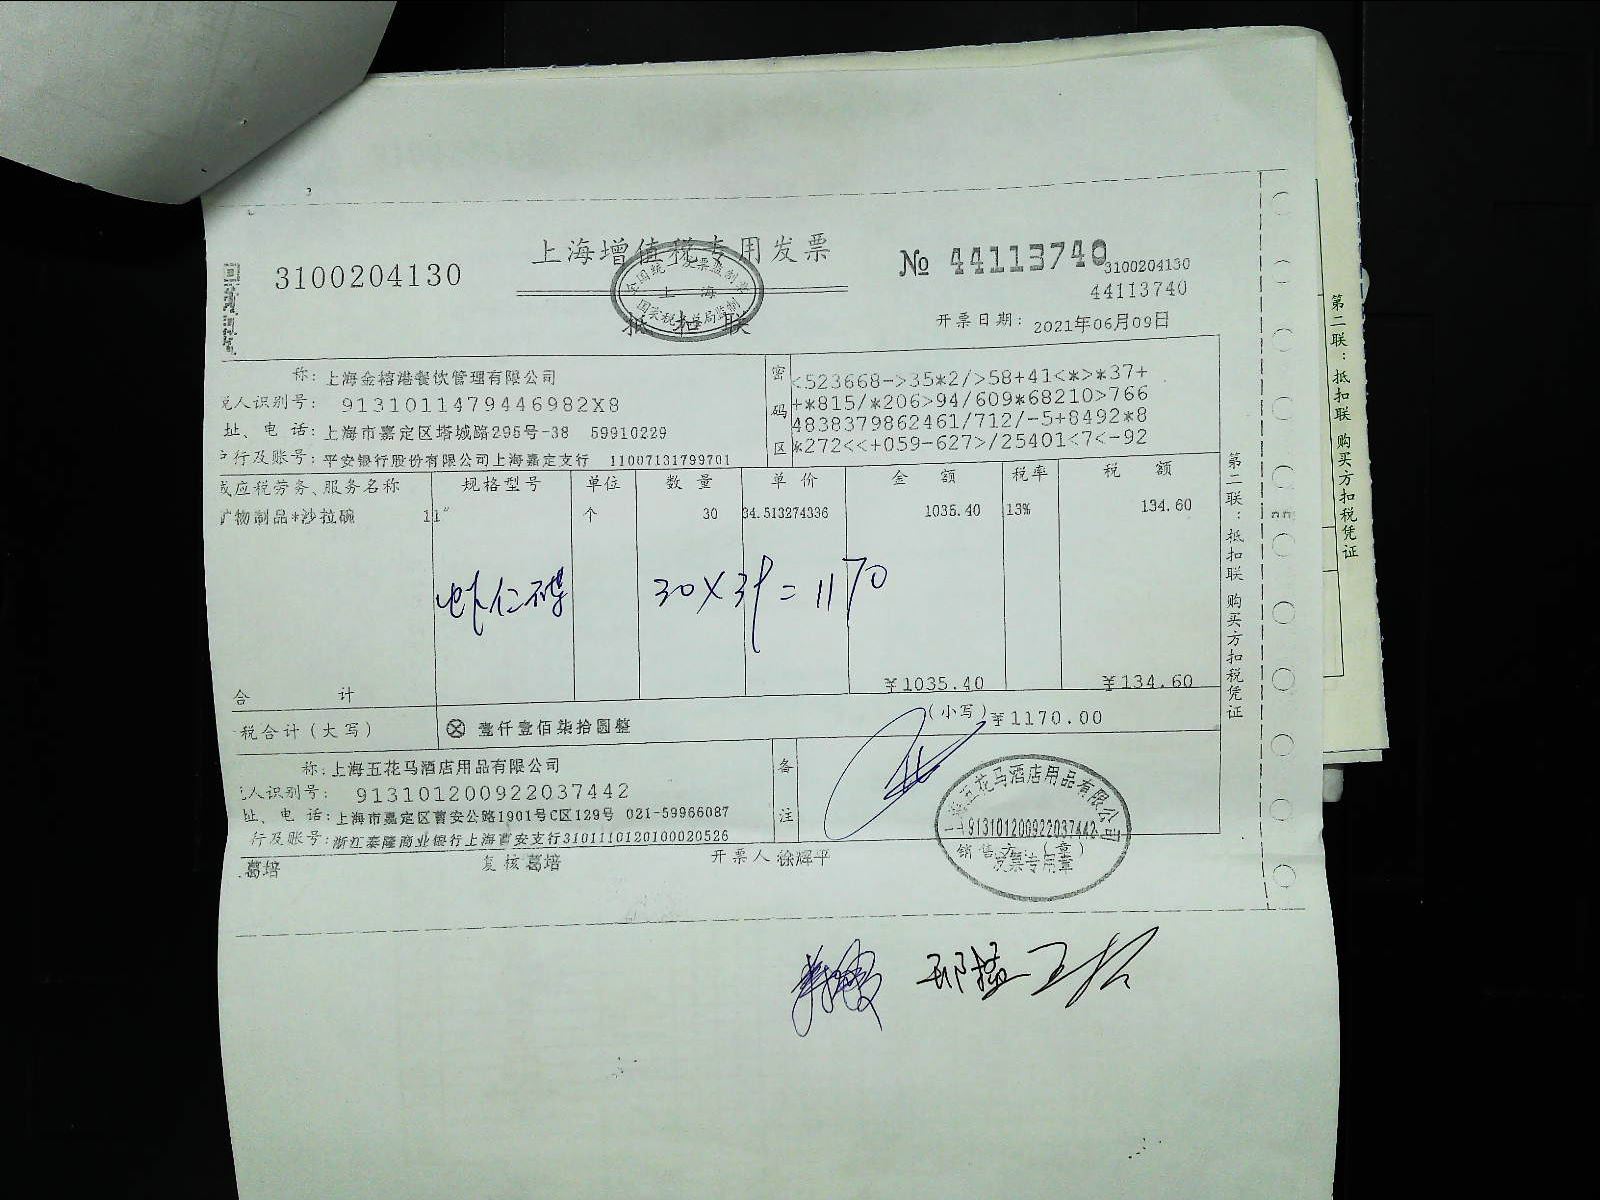 3100204130
上海增值税专用发票
抵扣联
全国统一发票监制章
上海
国家税务总局监制
№ 44113740
3100204130
44113740
开票日期: 2021年06月09日
称: 上海金榕港餐饮管理有限公司
税人识别号: 9131011479446982X8
址、电 话: 上海市嘉定区塔城路295号-38 59910229
户行及账号: 平安银行股份有限公司上海嘉定支行 11007131799701
密码区
<523668->35*2/>58+41<*>*37+
+*815/*206>94/609*68210>766
4838379862461/712/-5+8492*8
*272<<+059-627>/25401<7<-92
或应税劳务、服务名称 规格型号 单位 数 量 单 价 金 额 税率 税 额
矿物制品*沙拉碗 11" 个 30 34.513274336 1035.40 13% 134.60
虾仁碟 30×39=1170
合 计 ¥1035.40 ¥134.60
税合计(大写) ⊗ 壹仟壹佰柒拾圆整 (小写) ¥1170.00
称: 上海五花马酒店用品有限公司
人识别号: 913101200922037442
址、电 话: 上海市嘉定区曹安公路1901号C区129号 021-59966087
行及账号: 浙江泰隆商业银行上海曹安支行3101110120100020526
备注
葛培 复核 葛培 开票人 徐辉平 销售方:(章)
上海五花马酒店用品有限公司
913101200922037442
发票专用章
第二联:抵扣联 购买方扣税凭证
第二联:抵扣联 购买方扣税凭证